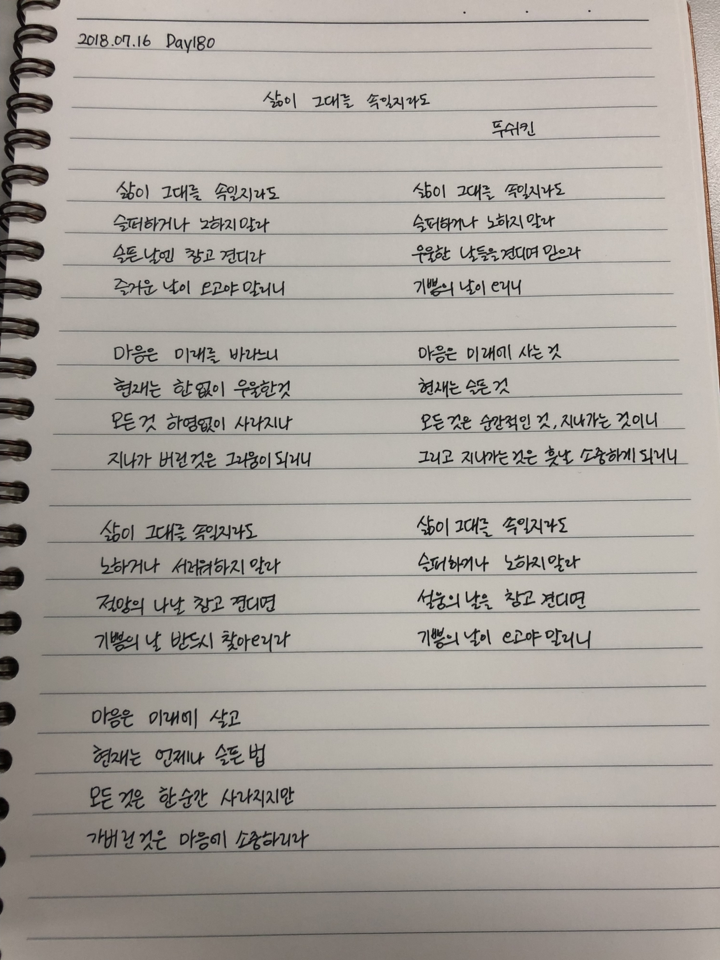 2018.07.16 Day180
삶이 그대를 속일지라도
푸쉬킨
삶이 그대를 속일지라도
슬퍼하거나 노하지 말라
슬픈 날엔 참고 견디라
즐거운 날이 오고야 말리니
마음은 미래를 바라느니
현재는 한없이 우울한것
모든 것 하염없이 사라지나
지나가 버린 것은 그리움이 되리니
삶이 그대를 속일지라도
노하거나 서러워하지 말라
절망의 나날 참고 견디면
기쁨의 날 반드시 찾아오리라
마음은 미래에 살고
현재는 언제나 슬픈 법
모든 것은 한순간 사라지지만
가버린 것은 마음에 소중하리라
삶이 그대를 속일지라도
슬퍼하거나 노하지 말라
우울한 날들을 견디며 믿으라
기쁨의 날이 오리니
마음은 미래에 사는 것
현재는 슬픈 것
모든 것은 순간적인 것, 지나가는 것이니
그리고 지나가는 것은 훗날 소중하게 되리니
삶이 그대를 속일지라도
슬퍼하거나 노하지 말라
설움의 날을 참고 견디면
기쁨의 날이 오고야 말리니